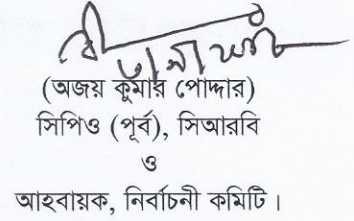 (অজয় কুমার পোদ্দার)
সিপিও (পূর্ব), সিআরবি
ও
আহবায়ক, নির্বাচনী কমিটি।